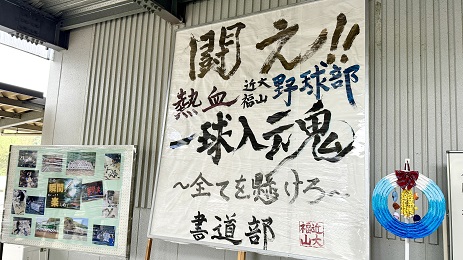 闘え!!
熱血 近大福山 野球部
一球入魂
~全てを懸けろ~
書道部
近大福山